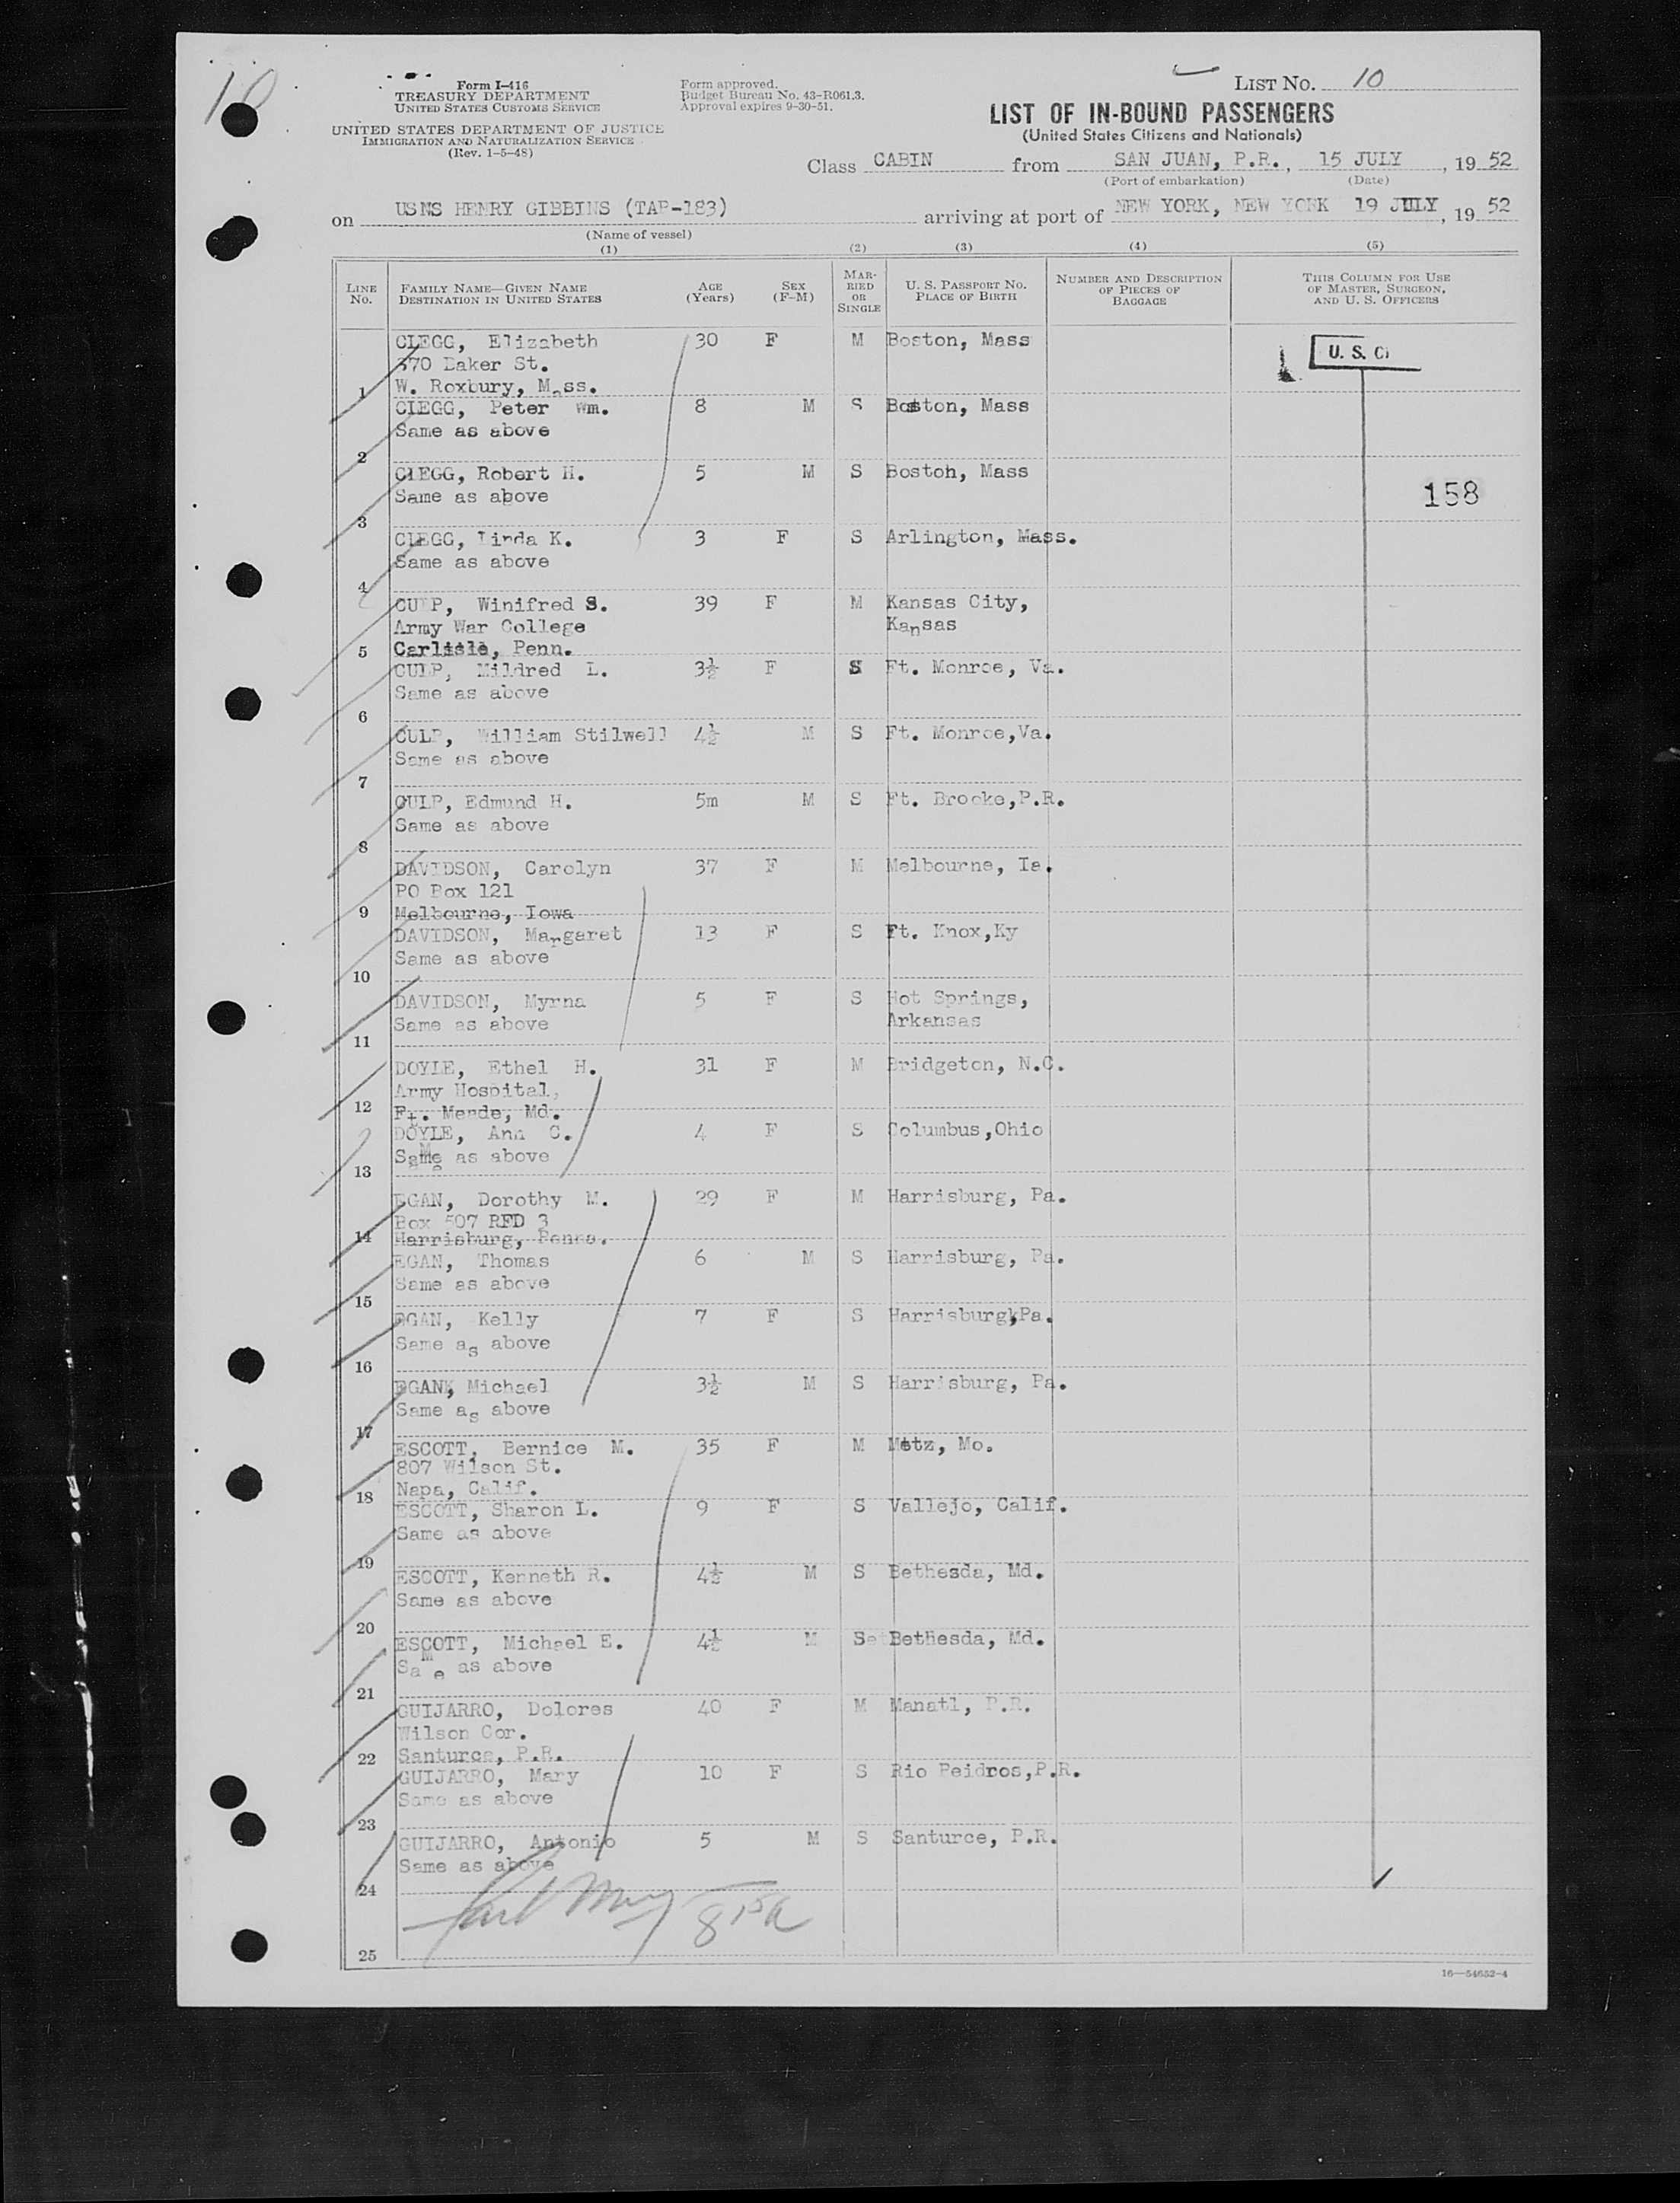 10
Form I-416
TREASURY DEPARTMENT
UNITED STATES CUSTOMS SERVICE
UNITED STATES DEPARTMENT OF JUSTICE
IMMIGRATION AND NATURALIZATION SERVICE
(Rev. 1-5-48)
Form approved.
Budget Bureau No. 43-R061.3.
Approval expires 9-30-51.
LIST NO. 10
LIST OF IN-BOUND PASSENGERS
(United States Citizens and Nationals)
Class CABIN from SAN JUAN, P.R., 15 JULY, 19 52
(Port of embarkation) (Date)
on USNS HENRY GIBBINS (TAP-183) arriving at port of NEW YORK, NEW YORK 19 JULY, 19 52
(Name of vessel)
(1) (2) (3) (4) (5)
LINE NO. FAMILY NAME—GIVEN NAME DESTINATION IN UNITED STATES AGE (Years) SEX (F-M) MARRIED OR SINGLE U. S. PASSPORT NO. PLACE OF BIRTH NUMBER AND DESCRIPTION OF PIECES OF BAGGAGE THIS COLUMN FOR USE OF MASTER, SURGEON, AND U. S. OFFICERS
CLEGG, Elizabeth 30 F M Boston, Mass U. S. C.
370 Baker St.
1 W. Roxbury, Mass.
CLEGG, Peter Wm. 8 M S Boston, Mass
Same as above
2
CLEGG, Robert H. 5 M S Boston, Mass
Same as above 158
3
CLEGG, Linda K. 3 F S Arlington, Mass.
Same as above
4
CULP, Winifred S. 39 F M Kansas City,
Army War College Kansas
5 Carlisle, Penn.
CULP, Mildred L. 3½ F S Ft. Monroe, Va.
Same as above
6
CULP, William Stilwell 4½ M S Ft. Monroe,Va.
Same as above
7
CULP, Edmund H. 5m M S Ft. Brooke,P.R.
Same as above
8
DAVIDSON, Carolyn 37 F M Melbourne, Ia.
PO Box 121
9 Melbourne, Iowa
DAVIDSON, Margaret 13 F S Ft. Knox,Ky
Same as above
10
DAVIDSON, Myrna 5 F S Hot Springs,
Same as above Arkansas
11
DOYLE, Ethel H. 31 F M Bridgeton, N.C.
Army Hospital,
12 Ft. Meade, Md.
DOYLE, Ann C. 4 F S Columbus,Ohio
Same as above
13
EGAN, Dorothy M. 29 F M Harrisburg, Pa.
Box 507 RFD 3
14 Harrisburg, Penna.
EGAN, Thomas 6 M S Harrisburg, Pa.
Same as above
15
EGAN, Kelly 7 F S Harrisburg,Pa.
Same as above
16
EGAN, Michael 3½ M S Harrisburg, Pa.
Same as above
17
ESCOTT, Bernice M. 35 F M Metz, Mo.
807 Wilson St.
18 Napa, Calif.
ESCOTT, Sharon L. 9 F S Vallejo, Calif.
Same as above
19
ESCOTT, Kenneth R. 4½ M S Bethesda, Md.
Same as above
20
ESCOTT, Michael E. 4½ M S Bethesda, Md.
Same as above
21
GUIJARRO, Dolores 40 F M Manatl, P.R.
Wilson Cor.
22 Santurce, P.R.
GUIJARRO, Mary 10 F S Rio Peidros,P.R.
Same as above
23
GUIJARRO, Antonio 5 M S Santurce, P.R.
Same as above
24
25
16—54652-4